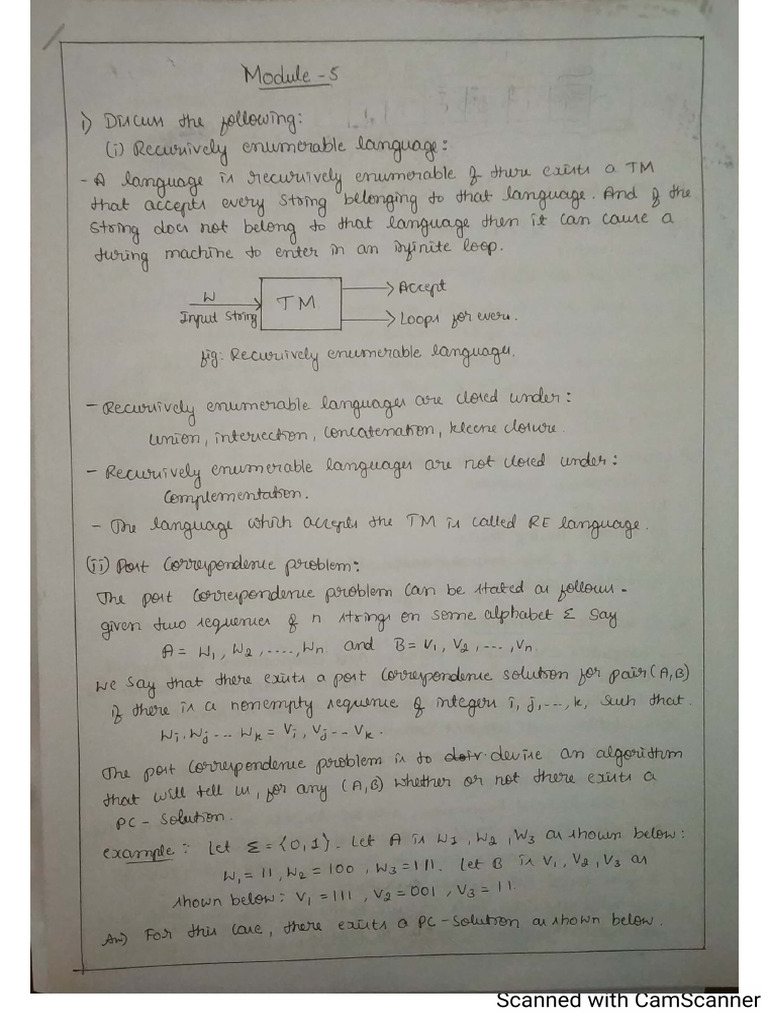 Module - 5
1) Discuss the following:
(i) Recursively enumerable language:
- A language is recursively enumerable if there exists a TM
that accepts every string belonging to that language. And if the
string does not belong to that language then it can cause a
turing machine to enter in an infinite loop.
W
Input String
TM
Accept
Loops for ever.
fig: Recursively enumerable languages.
- Recursively enumerable languages are closed under:
union, intersection, concatenation, kleene closure.
- Recursively enumerable languages are not closed under:
Complementation.
- The language which accepts the TM is called RE language.
(ii) Post Correspondence problem:
The post correspondence problem can be stated as follows -
given two sequences of n strings on some alphabet Σ say
A = W1, W2, ...., Wn and B = V1, V2, ..., Vn.
we say that there exists a post correspondence solution for pair (A, B)
if there is a nonempty sequence of integers i, j, ..., k, such that.
Wi, Wj ... Wk = Vi, Vj -- Vk.
The post correspondence problem is to devise an algorithm
that will tell us, for any (A, B) whether or not there exists a
PC - Solution.
example: Let Σ = {0, 1}. Let A is W1, W2, W3 as shown below:
W1 = 11, W2 = 100, W3 = 111. Let B is V1, V2, V3 as
shown below: V1 = 111, V2 = 001, V3 = 11.
Ans) For this case, there exists a PC - Solution as shown below.
Scanned with CamScanner